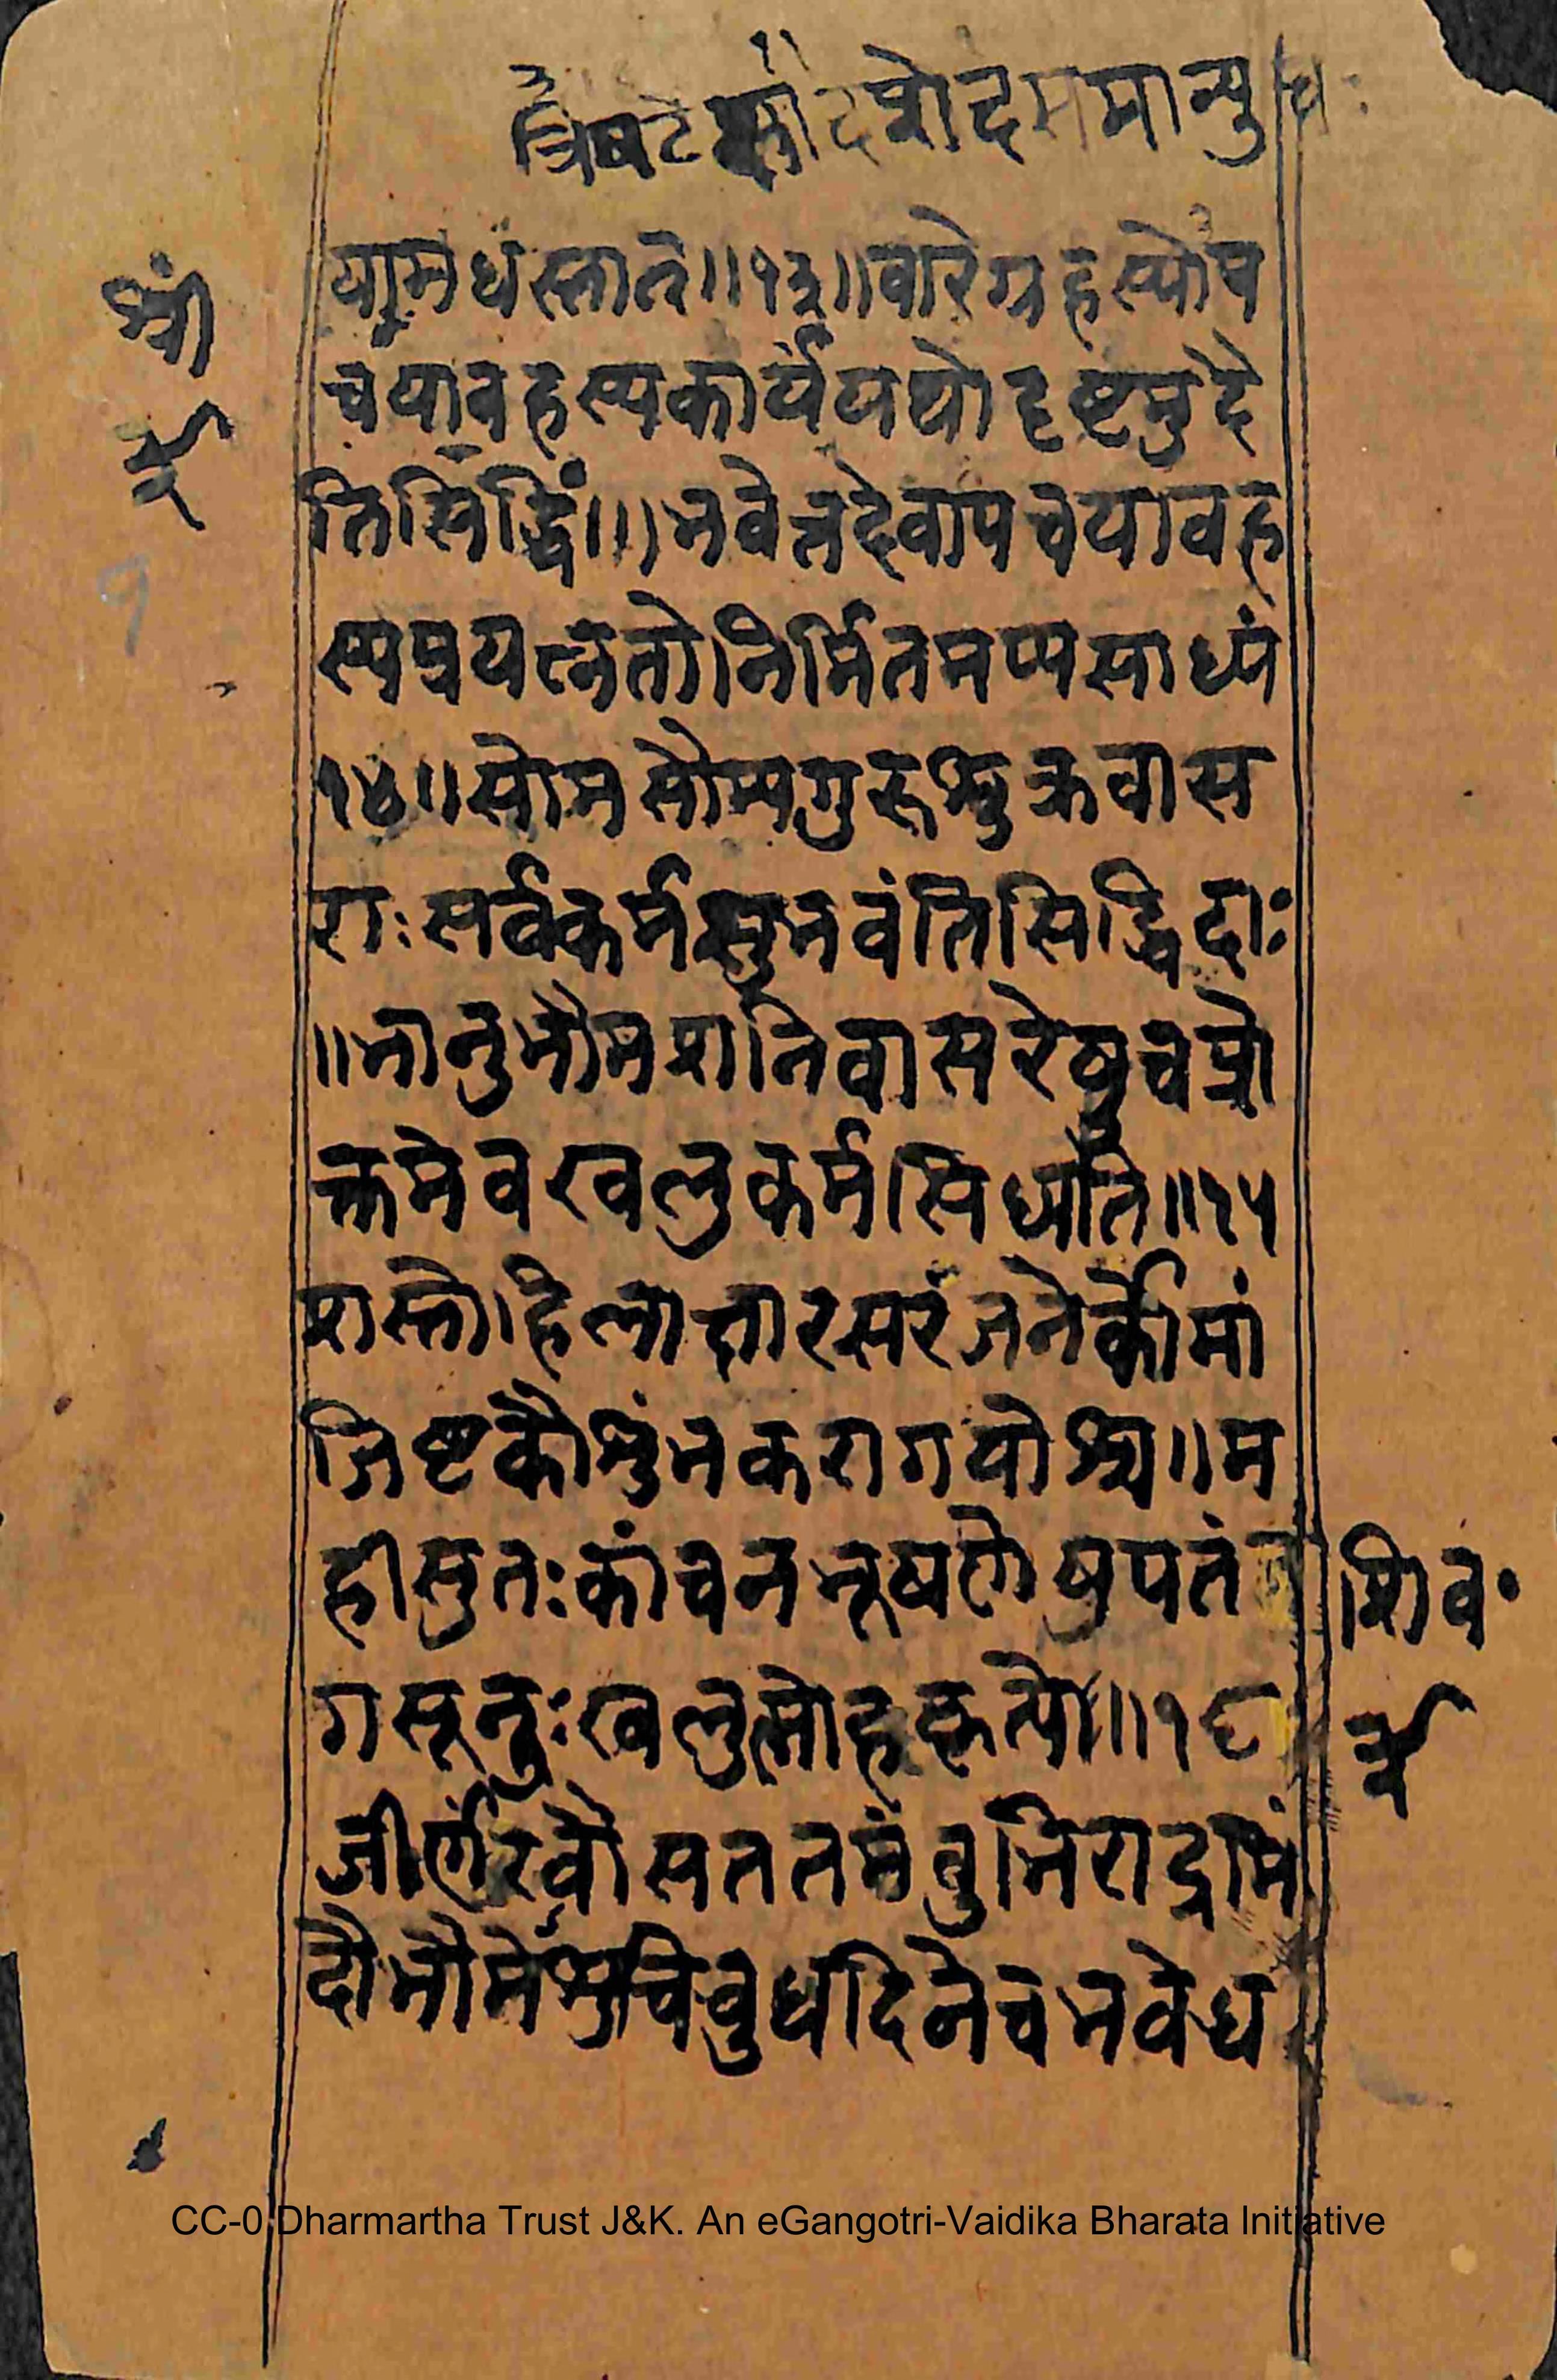 यामधस्तात॥१३॥वारेग्रहस्योप
चयावहस्यकार्यंयथोदृष्टमुदे
तिसिद्धिं॥।भवेत्तदेवापचयावह
स्यप्रयत्नतोनिर्मितमप्यसाध्यं
१४॥सोमसौम्यगुरूशुक्रवास
राःसर्वकर्मसुभवंतिसिद्धिदाः
॥भानुभौमशनिवासरेषुचप्रो
क्तमेवखलुकर्मसिध्यति॥१५
शस्तोहिलाक्षारसरंजनेर्कोमां
जिष्टकौशुंभकरागयोश्च॥म
हीसुतःकांचनभूषणेषुपतं
गसूनुःखलुलोहकृत्ये॥१६
जीर्णंरवौसततमंबुभिरार्द्रमिं
दौभौमेशुचेबुधदिनेचभवेध
श्री
शिव॰
CC-0 Dharmartha Trust J&K. An eGangotri-Vaidika Bharata Initiative